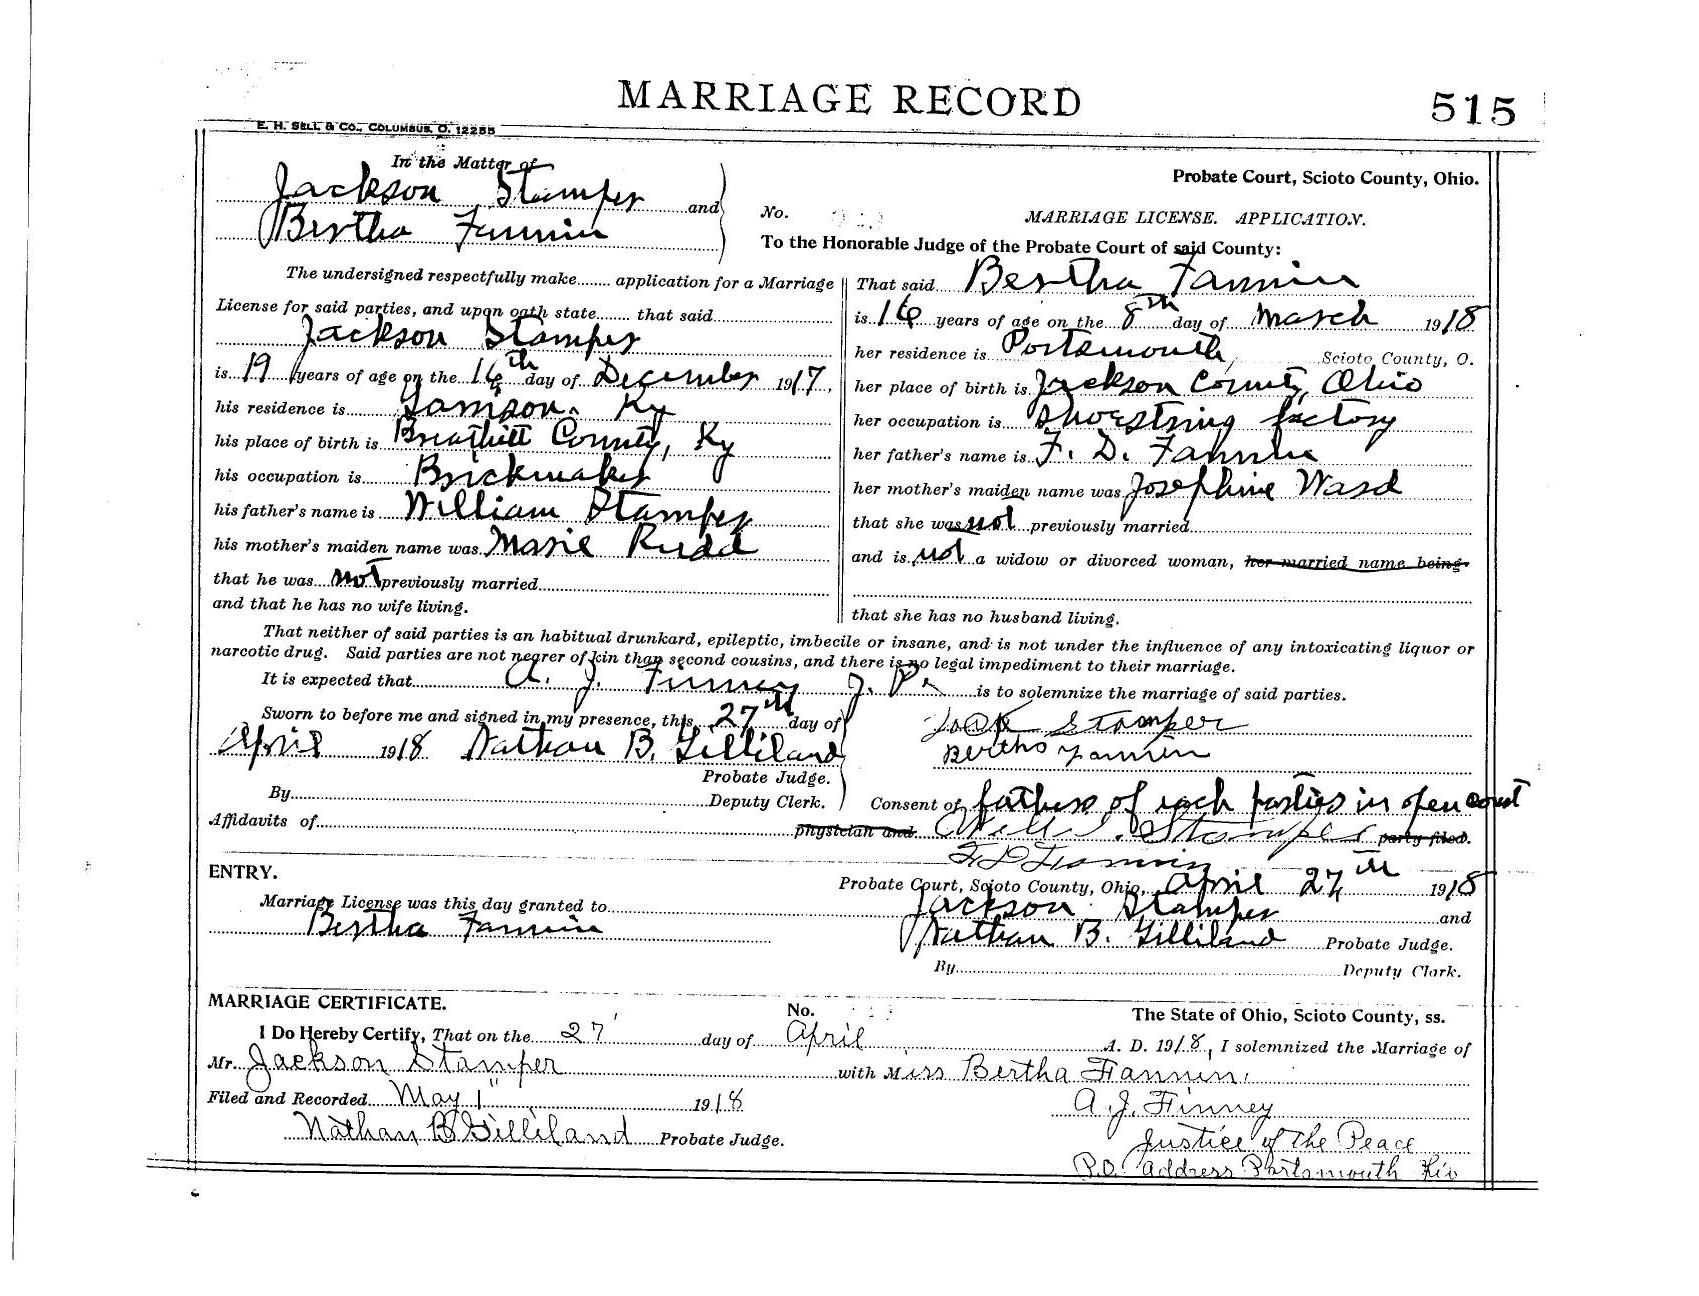 MARRIAGE RECORD
515
E. H. SELL & CO., COLUMBUS, O. 12255
In the Matter of
Jackson Stamper and
Bertha Fannin
Probate Court, Scioto County, Ohio.
No.
MARRIAGE LICENSE. APPLICATION.
To the Honorable Judge of the Probate Court of said County:
The undersigned respectfully make........ application for a Marriage
License for said parties, and upon oath state....... that said
Jackson Stamper
is 19 years of age on the 16th day of December 1917,
his residence is Ky
his place of birth is Breathitt County, Ky
his occupation is Brickmaker
his father's name is William Stamper
his mother's maiden name was Marie Rudd
that he was not previously married
and that he has no wife living.
That said Bertha Fannin
is 16 years of age on the 8th day of March 1918
her residence is Portsmouth, Scioto County, O.
her place of birth is Jackson County, Ohio
her occupation is Shoestring factory
her father's name is F. D. Fannin
her mother's maiden name was Josephine Ward
that she was not previously married
and is not a widow or divorced woman, her married name being
that she has no husband living.
That neither of said parties is an habitual drunkard, epileptic, imbecile or insane, and is not under the influence of any intoxicating liquor or
narcotic drug. Said parties are not nearer of kin than second cousins, and there is no legal impediment to their marriage.
It is expected that A. J. Finney J. P. is to solemnize the marriage of said parties.
Sworn to before me and signed in my presence, this 27th day of
April 1918 Nathan B. Gilliland
Probate Judge.
By Deputy Clerk.
Jack Stamper
Bertha Fannin
Consent of fathers of each parties in open court
Affidavits of physician and Will Stamper party filed.
F D Fannin
ENTRY.
Probate Court, Scioto County, Ohio, April 27th 1918
Marriage License was this day granted to Jackson Stamper and
Bertha Fannin
Nathan B. Gilliland Probate Judge.
By Deputy Clark.
MARRIAGE CERTIFICATE.
No.
The State of Ohio, Scioto County, ss.
I Do Hereby Certify, That on the 27 day of April A. D. 1918, I solemnized the Marriage of
Mr. Jackson Stamper with Miss Bertha Fannin.
Filed and Recorded May 1" 1918
A. J. Finney
Nathan B Gilliland Probate Judge.
Justice of the Peace
P.O. Address Portsmouth